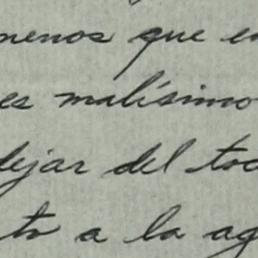 menos que en
es malísimo
dejar del toc
to a la ag